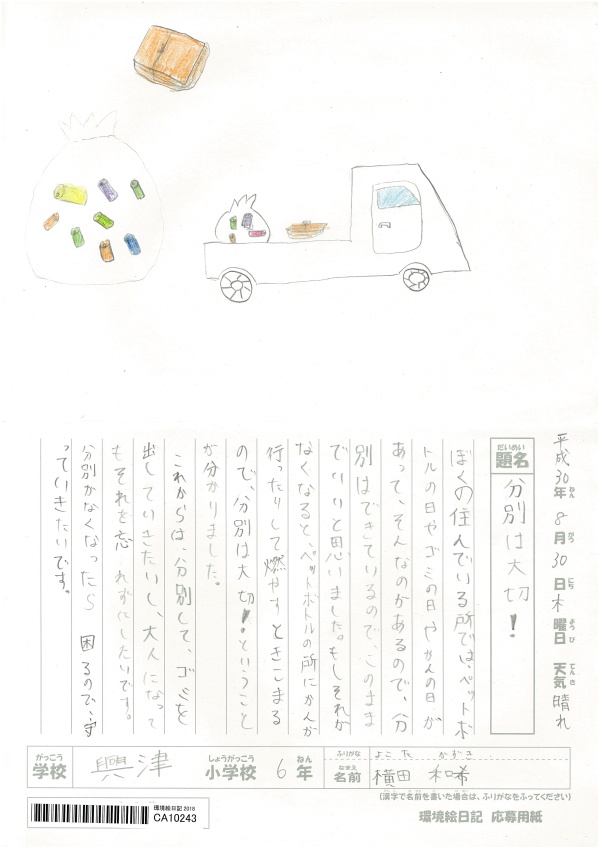 平成30年8月30日木曜日 天気 晴れ
ねん がつ にち ようび てんき
だいめい
題名 分別は大切!
ぼくの住んでいる所では、ペットボ
トルの日やゴミの日やかんの日が
あって、そんなのがあるので、分
別はできているので、このまま
でいいと思いました。もしそれが
なくなると、ペットボトルの所にかんが
行ったりして燃やすときこまる
ので、分別は大切!ということ
が分かりました。
これからは、分別して、ゴミを
出していきたいし、大人になって
もそれを忘れずにしたいです。
分別がなくなったら困るので、守
っていきたいです。
がっこう しょうがっこう ねん ふりがな よこた かずき
学校 興津 小学校 6年 なまえ 名前 横田 和希
(漢字で名前を書いた場合は、ふりがなをふってください)
環境絵日記 2018
CA10243
環境絵日記 応募用紙